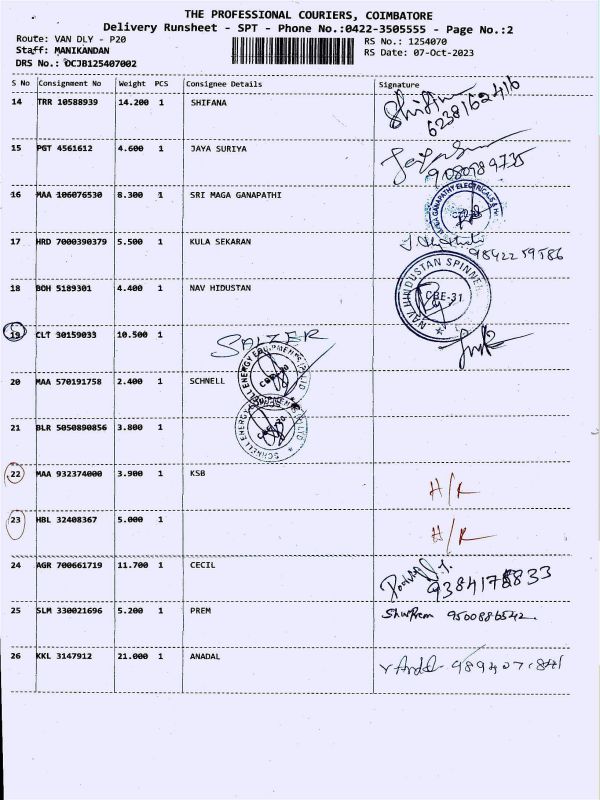 THE PROFESSIONAL COURIERS, COIMBATORE
Delivery Runsheet - SPT - Phone No.:0422-3505555 - Page No.:2
Route: VAN DLY - P20
RS No.: 1254070
Staff: MANIKANDAN
RS Date: 07-Oct-2023
DRS No.: OCJB125407002
S No Consignment No Weight PCS Consignee Details Signature
14 TRR 10588939 14.200 1 SHIFANA
6238162416
15 PGT 4561612 4.600 1 JAYA SURIYA
9080989735
16 MAA 106076530 8.300 1 SRI MAGA GANAPATHI
17 HRD 7000390379 5.500 1 KULA SEKARAN
9842259586
18 BOH 5189301 4.400 1 NAV HIDUSTAN
NAV HINDUSTAN SPINNER
CBE-31
19 CLT 30159033 10.500 1 SALZER
20 MAA 570191758 2.400 1 SCHNELL
SCHNELL ENERGY EQUIPMENTS (P) LTD
21 BLR 5050890856 3.800 1
SCHNELL ENERGY
22 MAA 932374000 3.900 1 KSB H/R
23 HBL 32408367 5.000 1 H/R
24 AGR 700661719 11.700 1 CECIL
25 SLM 330021696 5.200 1 PREM 9500886542
26 KKL 3147912 21.000 1 ANADAL